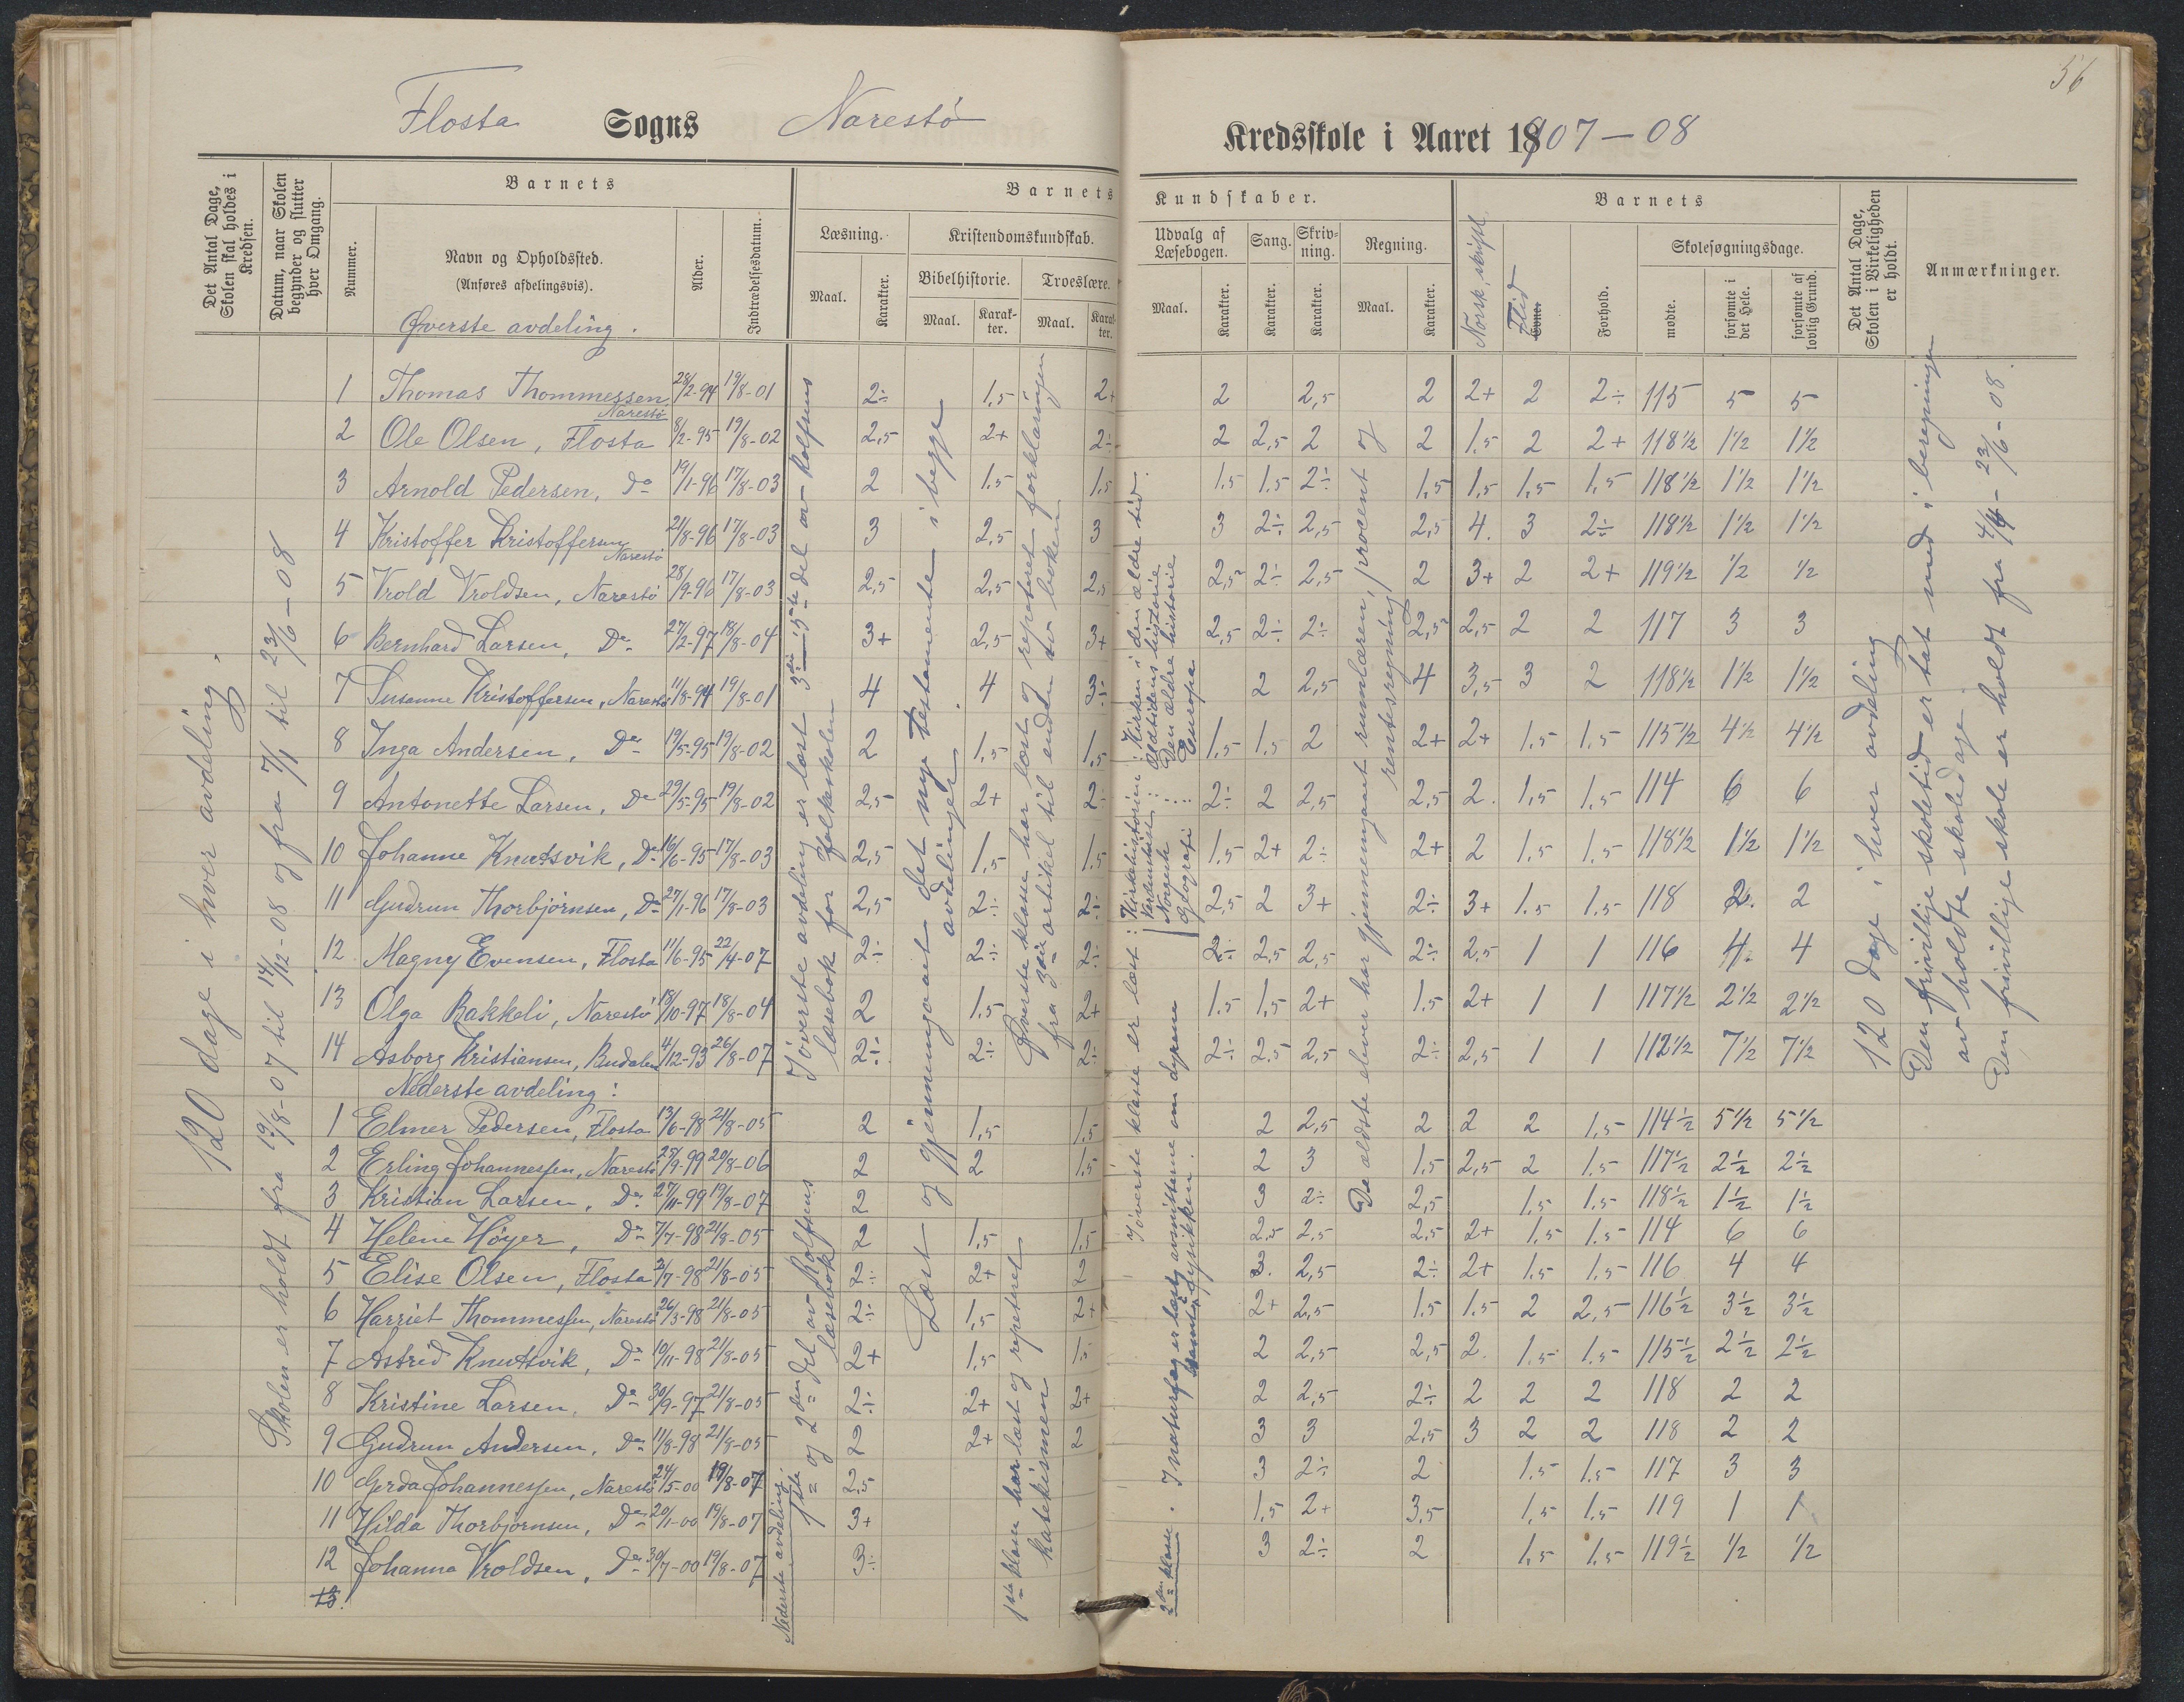 56
Flosta Sogns Narestö Kredsskole i Aaret 1907-08
Det Antal Dage, Skolen skal holdes i Kredsen.
Datum, naar Skolen begynder og slutter hver Omgang.
Barnets
Nummer.
Navn og Opholdssted.
(Anføres afdelingsvis).
Øverste avdeling.
Alder.
Indtrædelsesdatum.
Barnets Kundskaber.
Læsning.
Maal.
Karakter.
Kristendomskundskab.
Bibelhistorie.
Maal.
Karakter.
Troeslære.
Maal.
Karakter.
Udvalg af Læsebogen.
Maal.
Karakter.
Sang.
Karakter.
Skrivning.
Karakter.
Regning.
Maal.
Karakter.
Barnets
Norsk, skriftl.
Evner.
Flid
Forhold.
Skolesøgningsdage.
mødte.
forsømte i det Hele.
forsømte af lovlig Grund.
Det Antal Dage, Skolen i Virkeligheden er holdt.
Anmærkninger.
1 Thomas Thommessen, Narestö 28/2-94 19/8-01 2÷ 1,5 2+ 2 2,5 2 2+ 2 2÷ 115 5 5
2 Ole Olsen, Flosta 8/2-95 19/8-02 2,5 2+ 2÷ 2 2,5 2 2 1.5 2 2+ 118½ 1½ 1½
3 Arnold Pedersen, Do 19/1-96 17/8-03 2 1.5 1.5 1.5 1.5 2÷ 1,5 1,5 1,5 1,5 118½ 1½ 1½
4 Kristoffer Kristoffersen Narestö 21/8-96 17/8-03 3 2,5 3 3 2÷ 2,5 2,5 4. 3 2÷ 118½ 1½ 1½
5 Vrold Vroldsen, Narestö 28/9-96 17/8-03 2,5 2,5 2,5 2,5 2÷ 2,5 2 3+ 2 2+ 119½ ½ ½
6 Bernhard Larsen, Do 27/2-97 18/8-04 3+ 2,5 3+ 2,5 2÷ 2÷ 2,5 2,5 2 2 117 3 3
7 Susanne Kristoffersen, Narestö 11/8-94 19/8-01 4 4 3÷ 2 2,5 4 3,5 3 2 118½ 1½ 1½
8 Inga Andersen, Do 19/5-95 19/8-02 2 1,5 1,5 1,5 1,5 2 2+ 2+ 1,5 1,5 115½ 4½ 4½
9 Antonette Larsen, Do 29/5-95 19/8-02 2,5 2+ 2÷ 2÷ 2 2,5 2,5 2. 1,5 1,5 114 6 6
10 Johanne Knutsvik, Do 16/6-95 17/8-03 2,5 1,5 1.5 1,5 2+ 2÷ 2+ 2 1,5 1,5 118½ 1½ 1½
11 Gudrun Thorbjörnsen, Do 27/1-96 17/8-03 2,5 2÷ 2÷ 2,5 2 3+ 2÷ 3+ 1.5 1.5 118 2. 2
12 Magny Evensen, Flosta 11/6-95 22/4-07 2÷ 2÷ 2÷ 2÷ 2,5 2,5 2÷ 2,5 1 1 116 4. 4
13 Olga Bakkeli, Narestö 18/10-97 18/8-04 2 1.5 2+ 1.5 1,5 2+ 1.5 2+ 1 1 117½ 2½ 2½
14 Asborg Kristiansen, 4/12-93 26/8-07 2÷ 2÷ 2÷ 2÷ 2,5 2,5 2÷ 2,5 1 1 112½ 7½ 7½
Nederste avdeling:
1 Elmer Pedersen, Flosta 13/6-98 21/8-05 2 1,5 1.5 2 2,5 2 2 2 1,5 114½ 5½ 5½
2 Erling Johannessen, Narestö 25/9-99 20/8-06 2 2 1.5 2 3 1.5 2,5 2 1.5 117½ 2½ 2½
3 Kristian Larsen, Do 27/11-99 19/8-07 2 3 2÷ 2,5 1.5 1.5 118½ 1½ 1½
4 Helene Höyer, Do 7/7-98 21/8-05 2 1,5 1.5 2.5 2.5 2.5 2+ 1.5 1.5 114 6 6
5 Elise Olsen, Flosta 2/7-98 21/8-05 2÷ 2+ 2 3. 2,5 2÷ 2+ 1.5 1.5 116 4 4
6 Harriet Thommessen, Narestö 26/3-98 21/8-05 2÷ 1,5 2+ 2+ 2,5 1.5 1.5 2 2,5 116½ 3½ 3½
7 Astrid Knutsvik, Do 10/11-98 21/8-05 2+ 1,5 1.5 2 2,5 2,5 2. 1.5 1.5 115½ 2½ 2½
8 Kristine Larsen, Do 30/9-97 21/8-05 2÷ 2+ 2+ 2 2,5 2÷ 2 2 2 118 2 2
9 Gudrun Andersen, Do 11/8-98 21/8-05 2 2+ 2 3 3 2,5 3 2 2 118 2 2
10 Gerda Johannessen, Narestö 24/5-00 19/8-07 2,5 3 2÷ 2 1.5 1.5 117 3 3
11 Hilda Thorbjörnsen, Do 20/1-00 19/8-07 3+ 1,5 2+ 3,5 1,5 1.5 119 1 1
12 Johanna Vroldsen, Do 30/7-00 19/8-07 3÷ 3 2÷ 2 1,5 1.5 119½ ½ ½
13.
120 dage i hver avdeling.
Skolen er holdt fra 19/8-07 til 14/12-08 og fra 7/1 til 23/6-08
I överste avdeling er læst 3die - 5te del av Rolfsens
læsebok for folkeskolen
Nederste avdeling.
1ste og 2den del av Rolfsens
læsebok
Læst og gjennemgaaet det nye testamente i begge
avdelinger.
Øverste klasse har læst og repeteret forklaringen
fra 3die artikel til enden av boken
1ste klasse har læst og repeteret
katekismen
I överste klasse er læst: Kirkehistorien: Kirken i den ældre tid.
Verdenshist: Oldtidens historie
Norges: Den ældre historie
Geografi: Europa
2den klasse. I naturfag er læst avsnittene om dyrene
samt fysikken.
De ældste elver har gjennemgaaet rumlæren, procent og
rentesregning
120 dage i hver avdeling
Den frivillige skoletid er tat med i beregningen
av holdte skoledage.
Den frivillige skole er holdt fra 4/4 - 23/6-08.